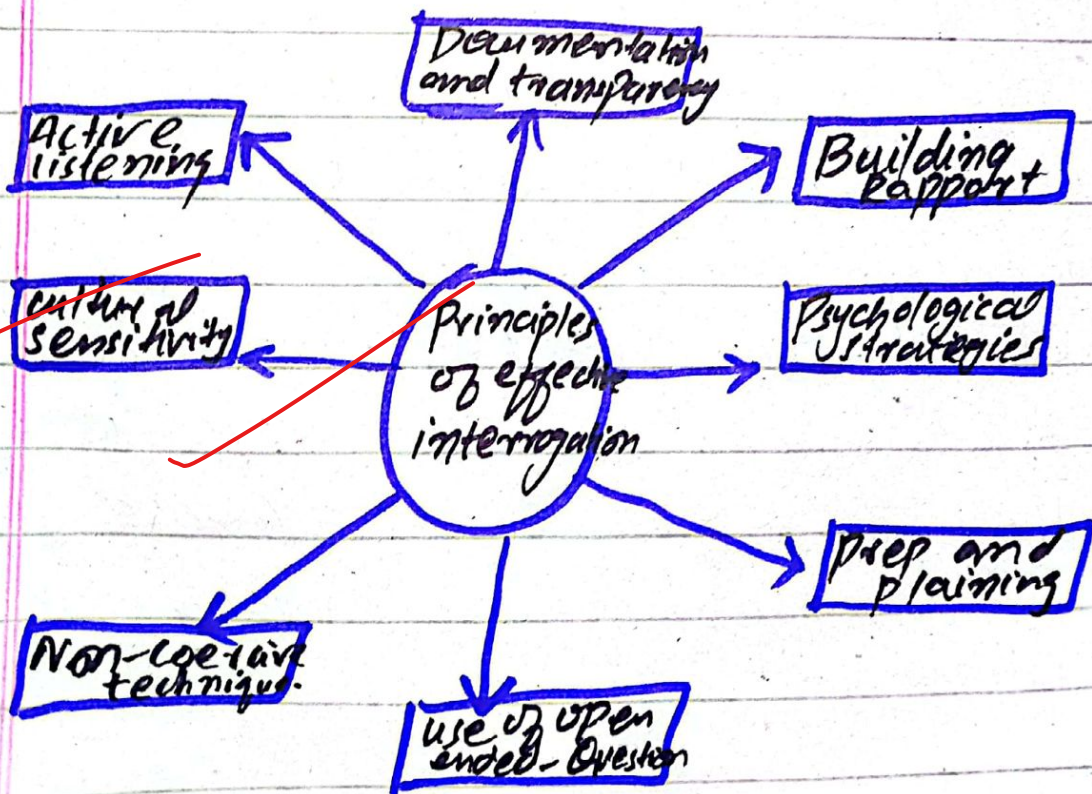 Documentation
and transparency
Active
listening
Building
Rapport
cultural
sensitivity
Principles
of effective
interrogation
Psychological
strategies
Prep and
plaining
Non-coercive
technique.
use of open
ended-Question